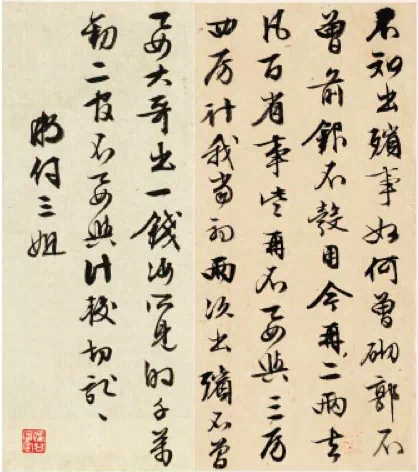 不知出殯事如何曾砌郭否
曾前銀不彀用今再二兩去
凡百省事些再不要與三房
四房計我當初兩次出殯不曾
要大哥出一錢汝所見的千萬
勸二官不要與計較切記、
付三姐